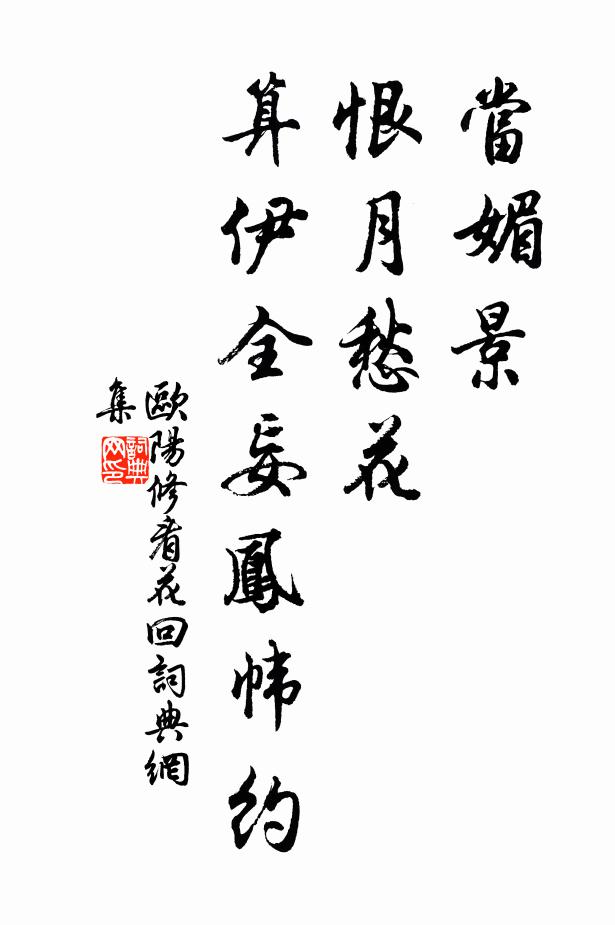 當媚景
恨月愁花
算伊全妄鳳幃約
歐陽修看花回詞典網
集
詞典
网印